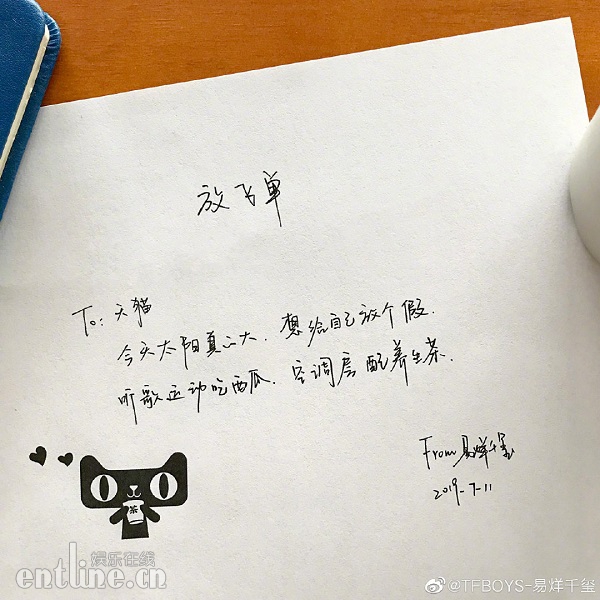 放飞单
To: 天猫
今天太阳真心大. 想给自己放个假.
听歌运动吃西瓜. 空调房配养生茶.
From 易烊千玺
2019-7-11
茶
娱乐在线
entline.cn
@TFBOYS-易烊千玺